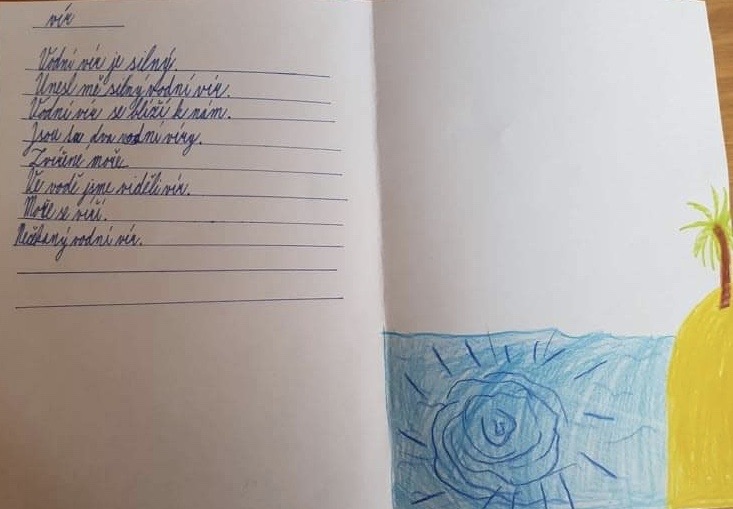 vír
Vodní vír je silný.
Unesl mě silný vodní vír.
Vodní vír se blíží k nám.
Jsou tu dva vodní víry.
Zvířené moře.
Ve vodě jsme viděli vír.
Moře se víří.
Nečekaný vodní vír.